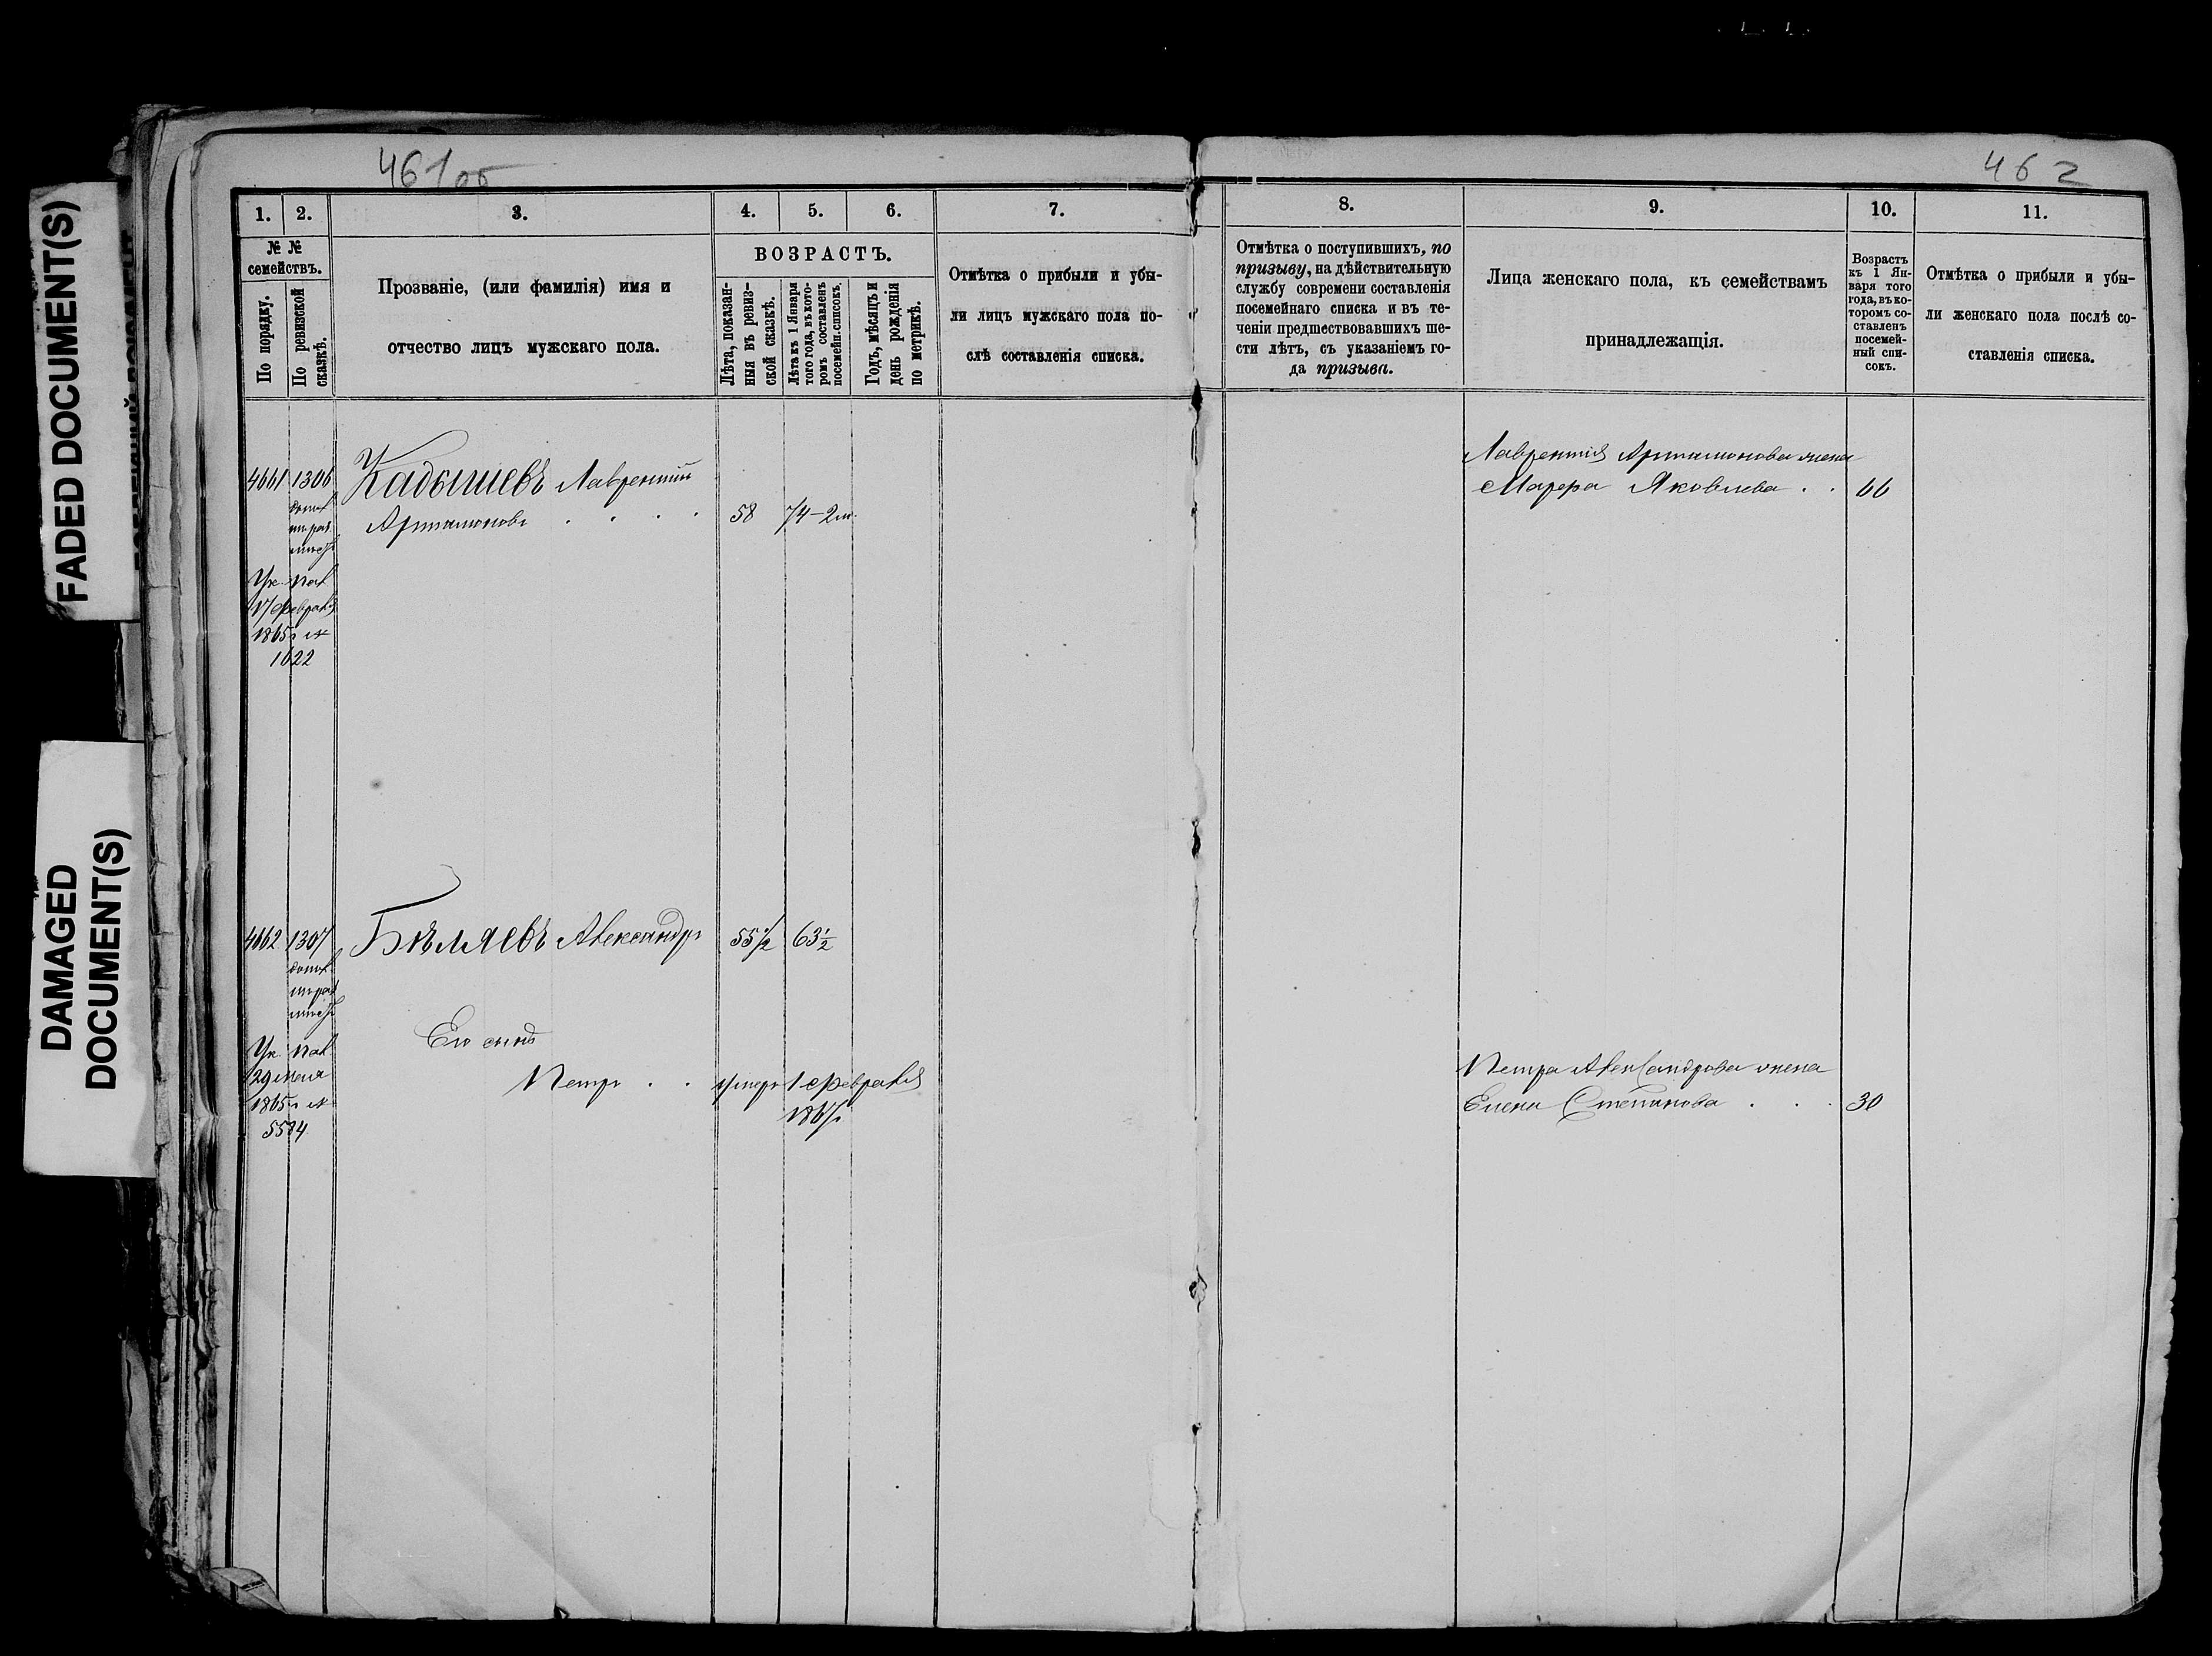 461об
462
FADED DOCUMENT(S)
DAMAGED
DOCUMENT(S)
1.
2.
3.
4.
5.
6.
7.
8.
9.
10.
11.
№ №
семействъ.
По порядку.
По ревизской
сказкѣ.
Прозваніе, (или фамилія) имя и
отчество лицъ мужскаго пола.
ВОЗРАСТЪ.
Лѣта, показан-
ныя въ ревиз-
ской сказкѣ.
Лѣта къ 1 Января
того года, въ кото-
ромъ составленъ
посемейн. списокъ.
Годъ, мѣсяцъ и
день рожденія
по метрикѣ.
Отмѣтка о прибыли и убы-
ли лицъ мужскаго пола по-
слѣ составленія списка.
Отмѣтка о поступившихъ, по
призыву, на дѣйствительную
службу современи составленія
посемейнаго списка и въ те-
ченіи предшествовавшихъ ше-
сти лѣтъ, съ указаніемъ го-
да призыва.
Лица женскаго пола, къ семействамъ
принадлежащія.
Возрастъ
къ 1 Ян-
варя того
года, въ ко-
торомъ со-
ставленъ
посемей-
ный спи-
сокъ.
Отмѣтка о прибыли и убы-
ли женскаго пола послѣ со-
ставленія списка.
4661 1306 Кадышевъ Лаврентій
Артамоновъ . . . . 58 74-2м.
Лаврентія Артамонова жена
Марфа Яковлева . . 66
Ук. пал
17 февраля
1865г №
1622
4662 1307 Бѣляевъ Александръ 55½ 63½
Его сынъ
Петръ . . умеръ 1 февраля
186
Ук. пал
29
1865г №
5584
Петра Александрова жена
Елена Степанова . . . 30